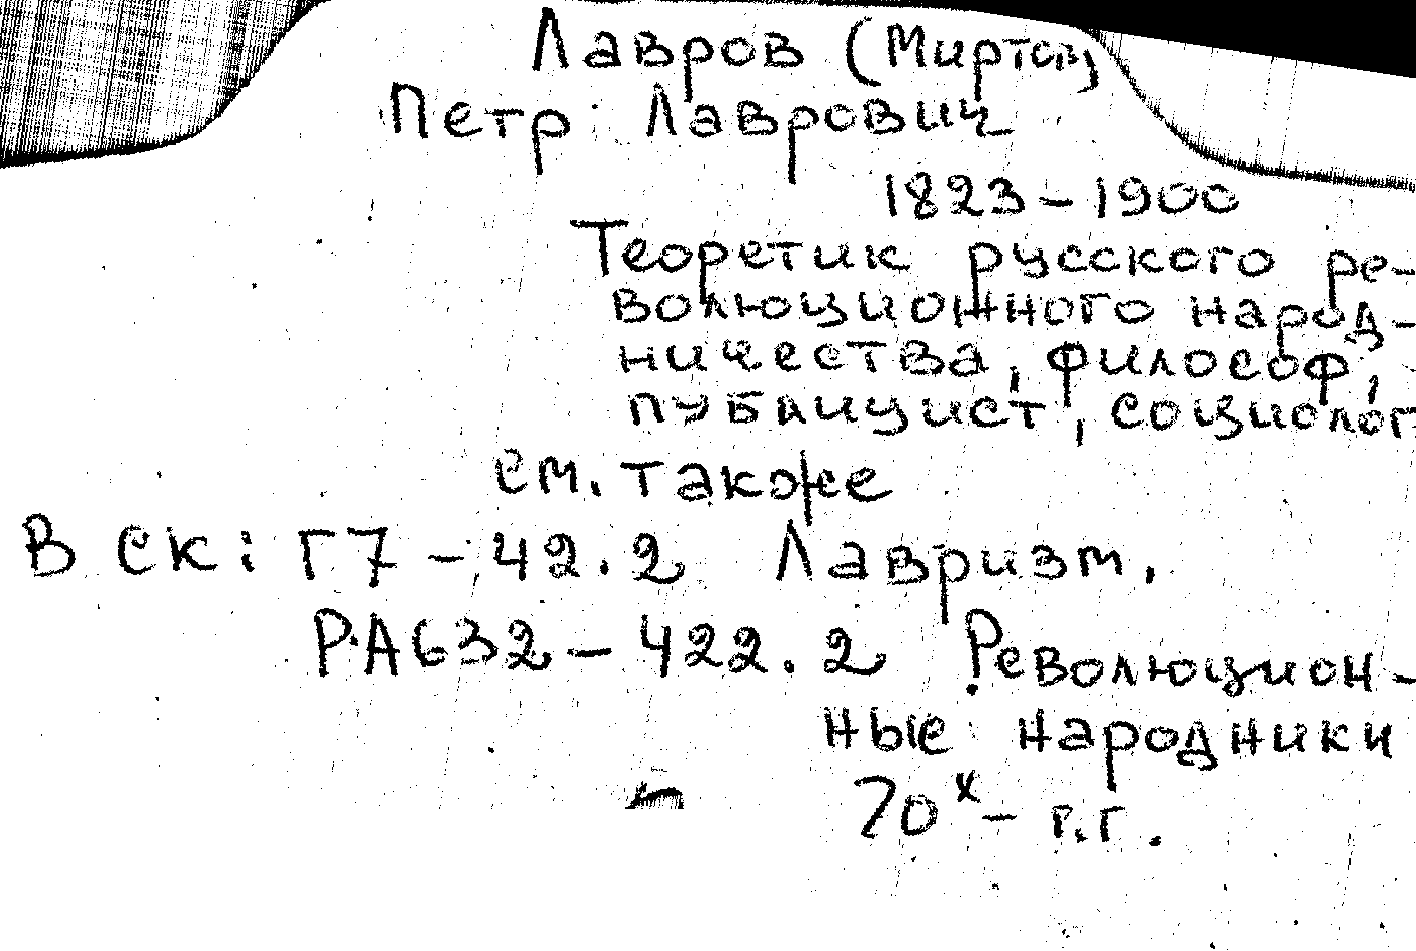 Лавров (Миртов)
Петр Лаврович
1823-1900
Теоретик русского ре-
волюционного народ-
ничества, философ,
публицист, социолог
см. также
В ск: Г7-42.2 Лавризм.
РА632-422.2 Революцион-
ные народники
70х- г.г.